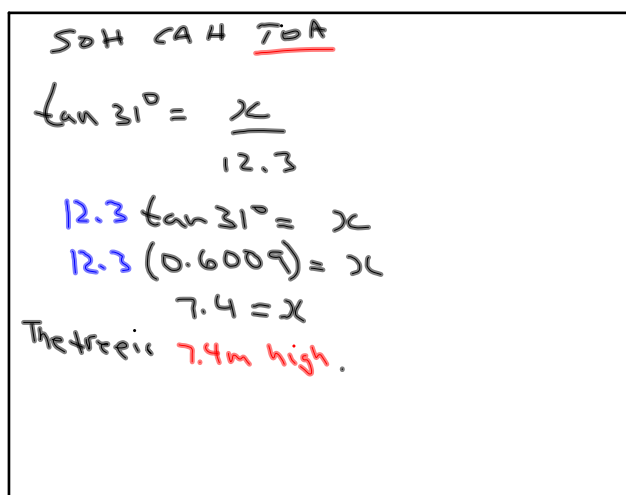 SOH CAH TOA
tan 31° = x
12.3
12.3 tan 31° = x
12.3 (0.6009) = x
7.4 = x
The tree is 7.4m high.